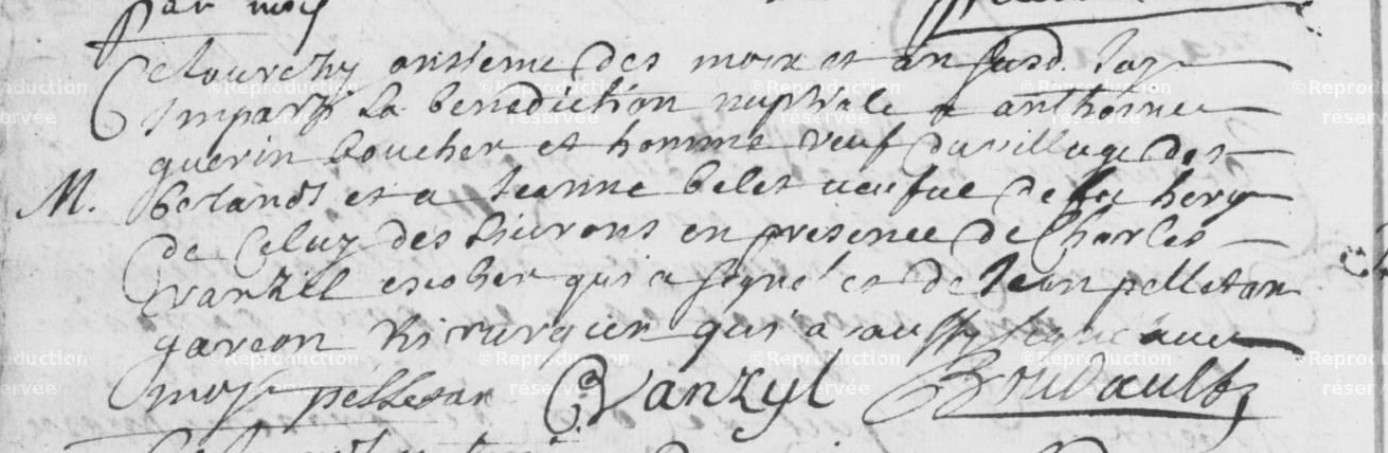 par moy
Cejourdhuy onsieme des mois et an susd. jay
imparty la benediction nuptiale a anthoinne
guerin boucher et homme veuf du village des
M. et a Jeanne belet veufue de feu hery
de celuy des en presence de Charles
vanzil escolier qui a signé et de Jean pelletan
garcon chirurgien qui a aussy signé auec
moy pelletan C. Vanzyl Boudault